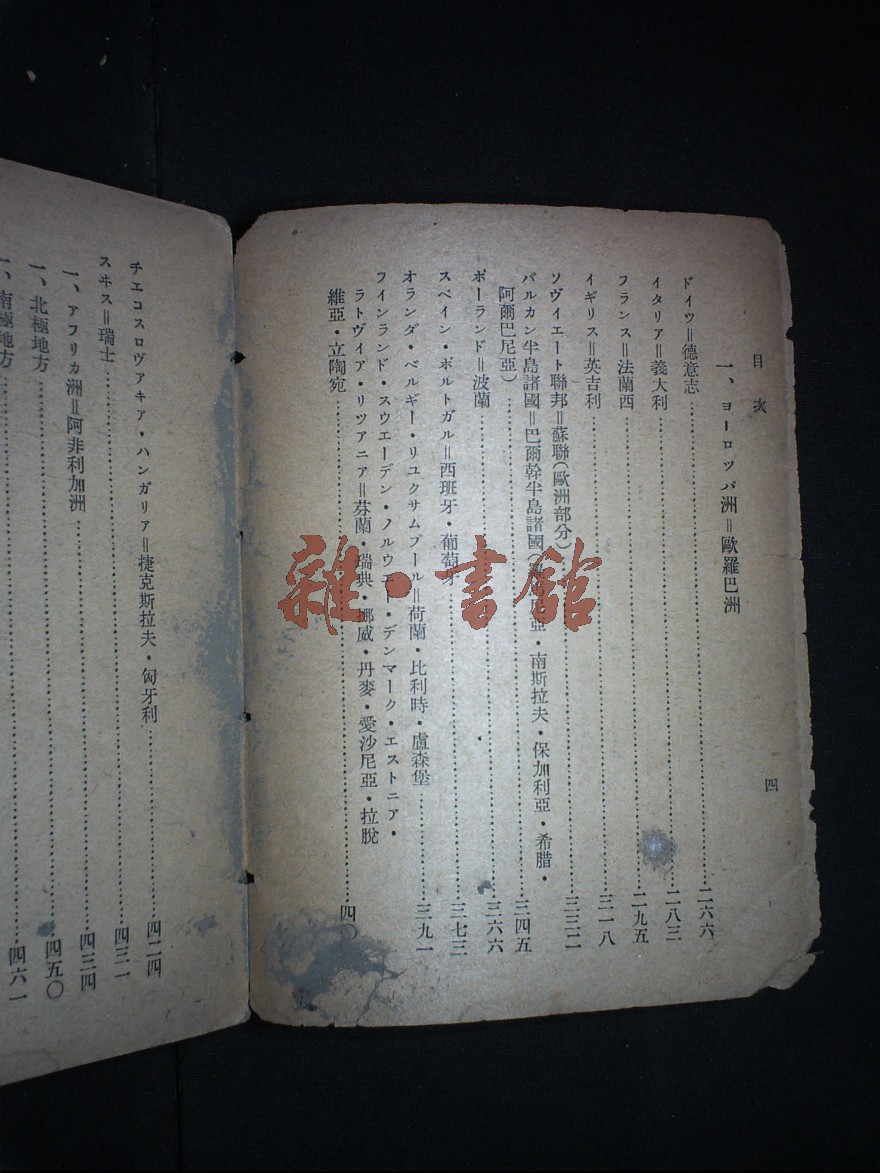 目次
四
一、ヨーロッパ洲＝歐羅巴洲
ドイツ＝德意志…二六六
イタリア＝義大利…二八三
フランス＝法蘭西…二九五
イギリス＝英吉利…三一八
ソヴィエート聯邦＝蘇聯(歐洲部分)…三三二
バルカン半島諸國＝巴爾幹半島諸國(尼亞・南斯拉夫・保加利亞・希腊・
阿爾巴尼亞)…三四五
ポーランド＝波蘭…三六六
スペイン・ポルトガル＝西班牙・葡萄牙…三七三
オランダ・ベルギー・リユクサムブール＝荷蘭・比利時・盧森堡…三九一
フインランド・スウエーデン・ノルウエー・デンマーク・エストニア・
ラトヴイア・リツアニア＝芬蘭・瑞典・挪威・丹麥・愛沙尼亞・拉脫
維亞・立陶宛…四〇
チエコスロヴアキア・ハンガリア＝捷克斯拉夫・匈牙利…四二四
スヰス＝瑞士…四三一
一、アフリカ洲＝阿非利加洲…四三四
一、北極地方…四五〇
一、南極地方…四六一
雜・書館